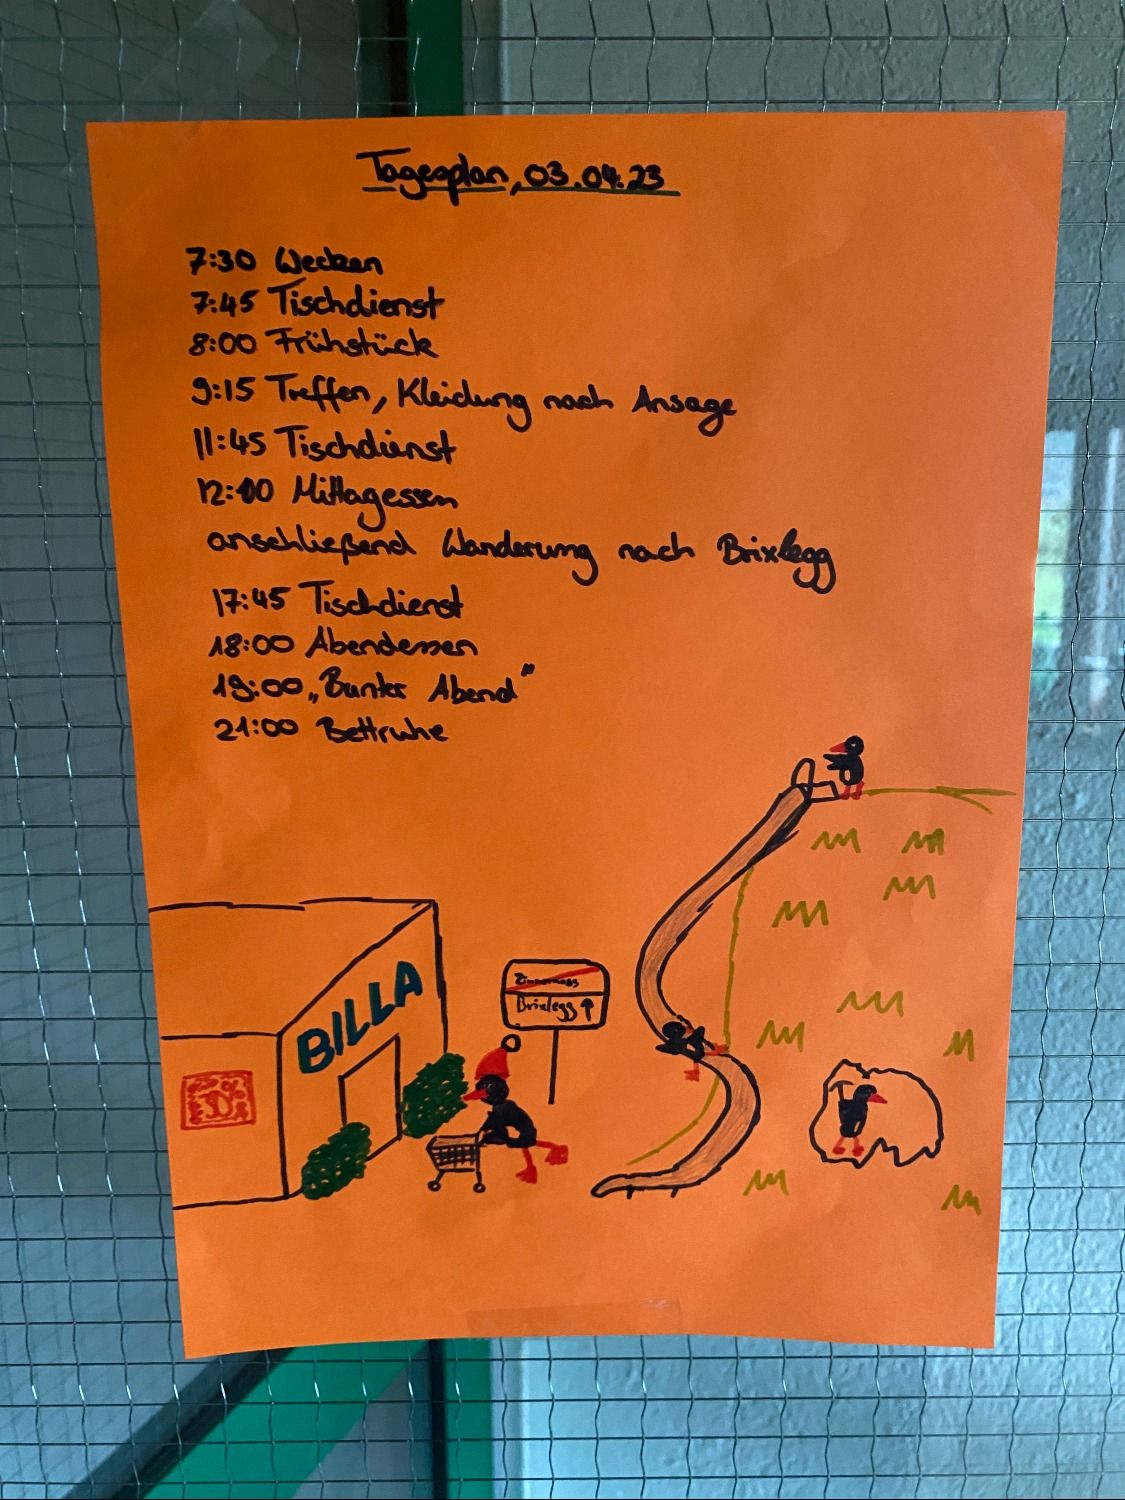 Tagesplan, 03.04.23
7:30 Wecken
7:45 Tischdienst
8:00 Frühstück
9:15 Treffen, Kleidung nach Ansage
11:45 Tischdienst
12:00 Mittagessen
anschließend Wanderung nach Brixlegg
17:45 Tischdienst
18:00 Abendessen
19:00 „Bunter Abend"
21:00 Bettruhe
BILLA
Zimmermoos
Brixlegg ↑
30%